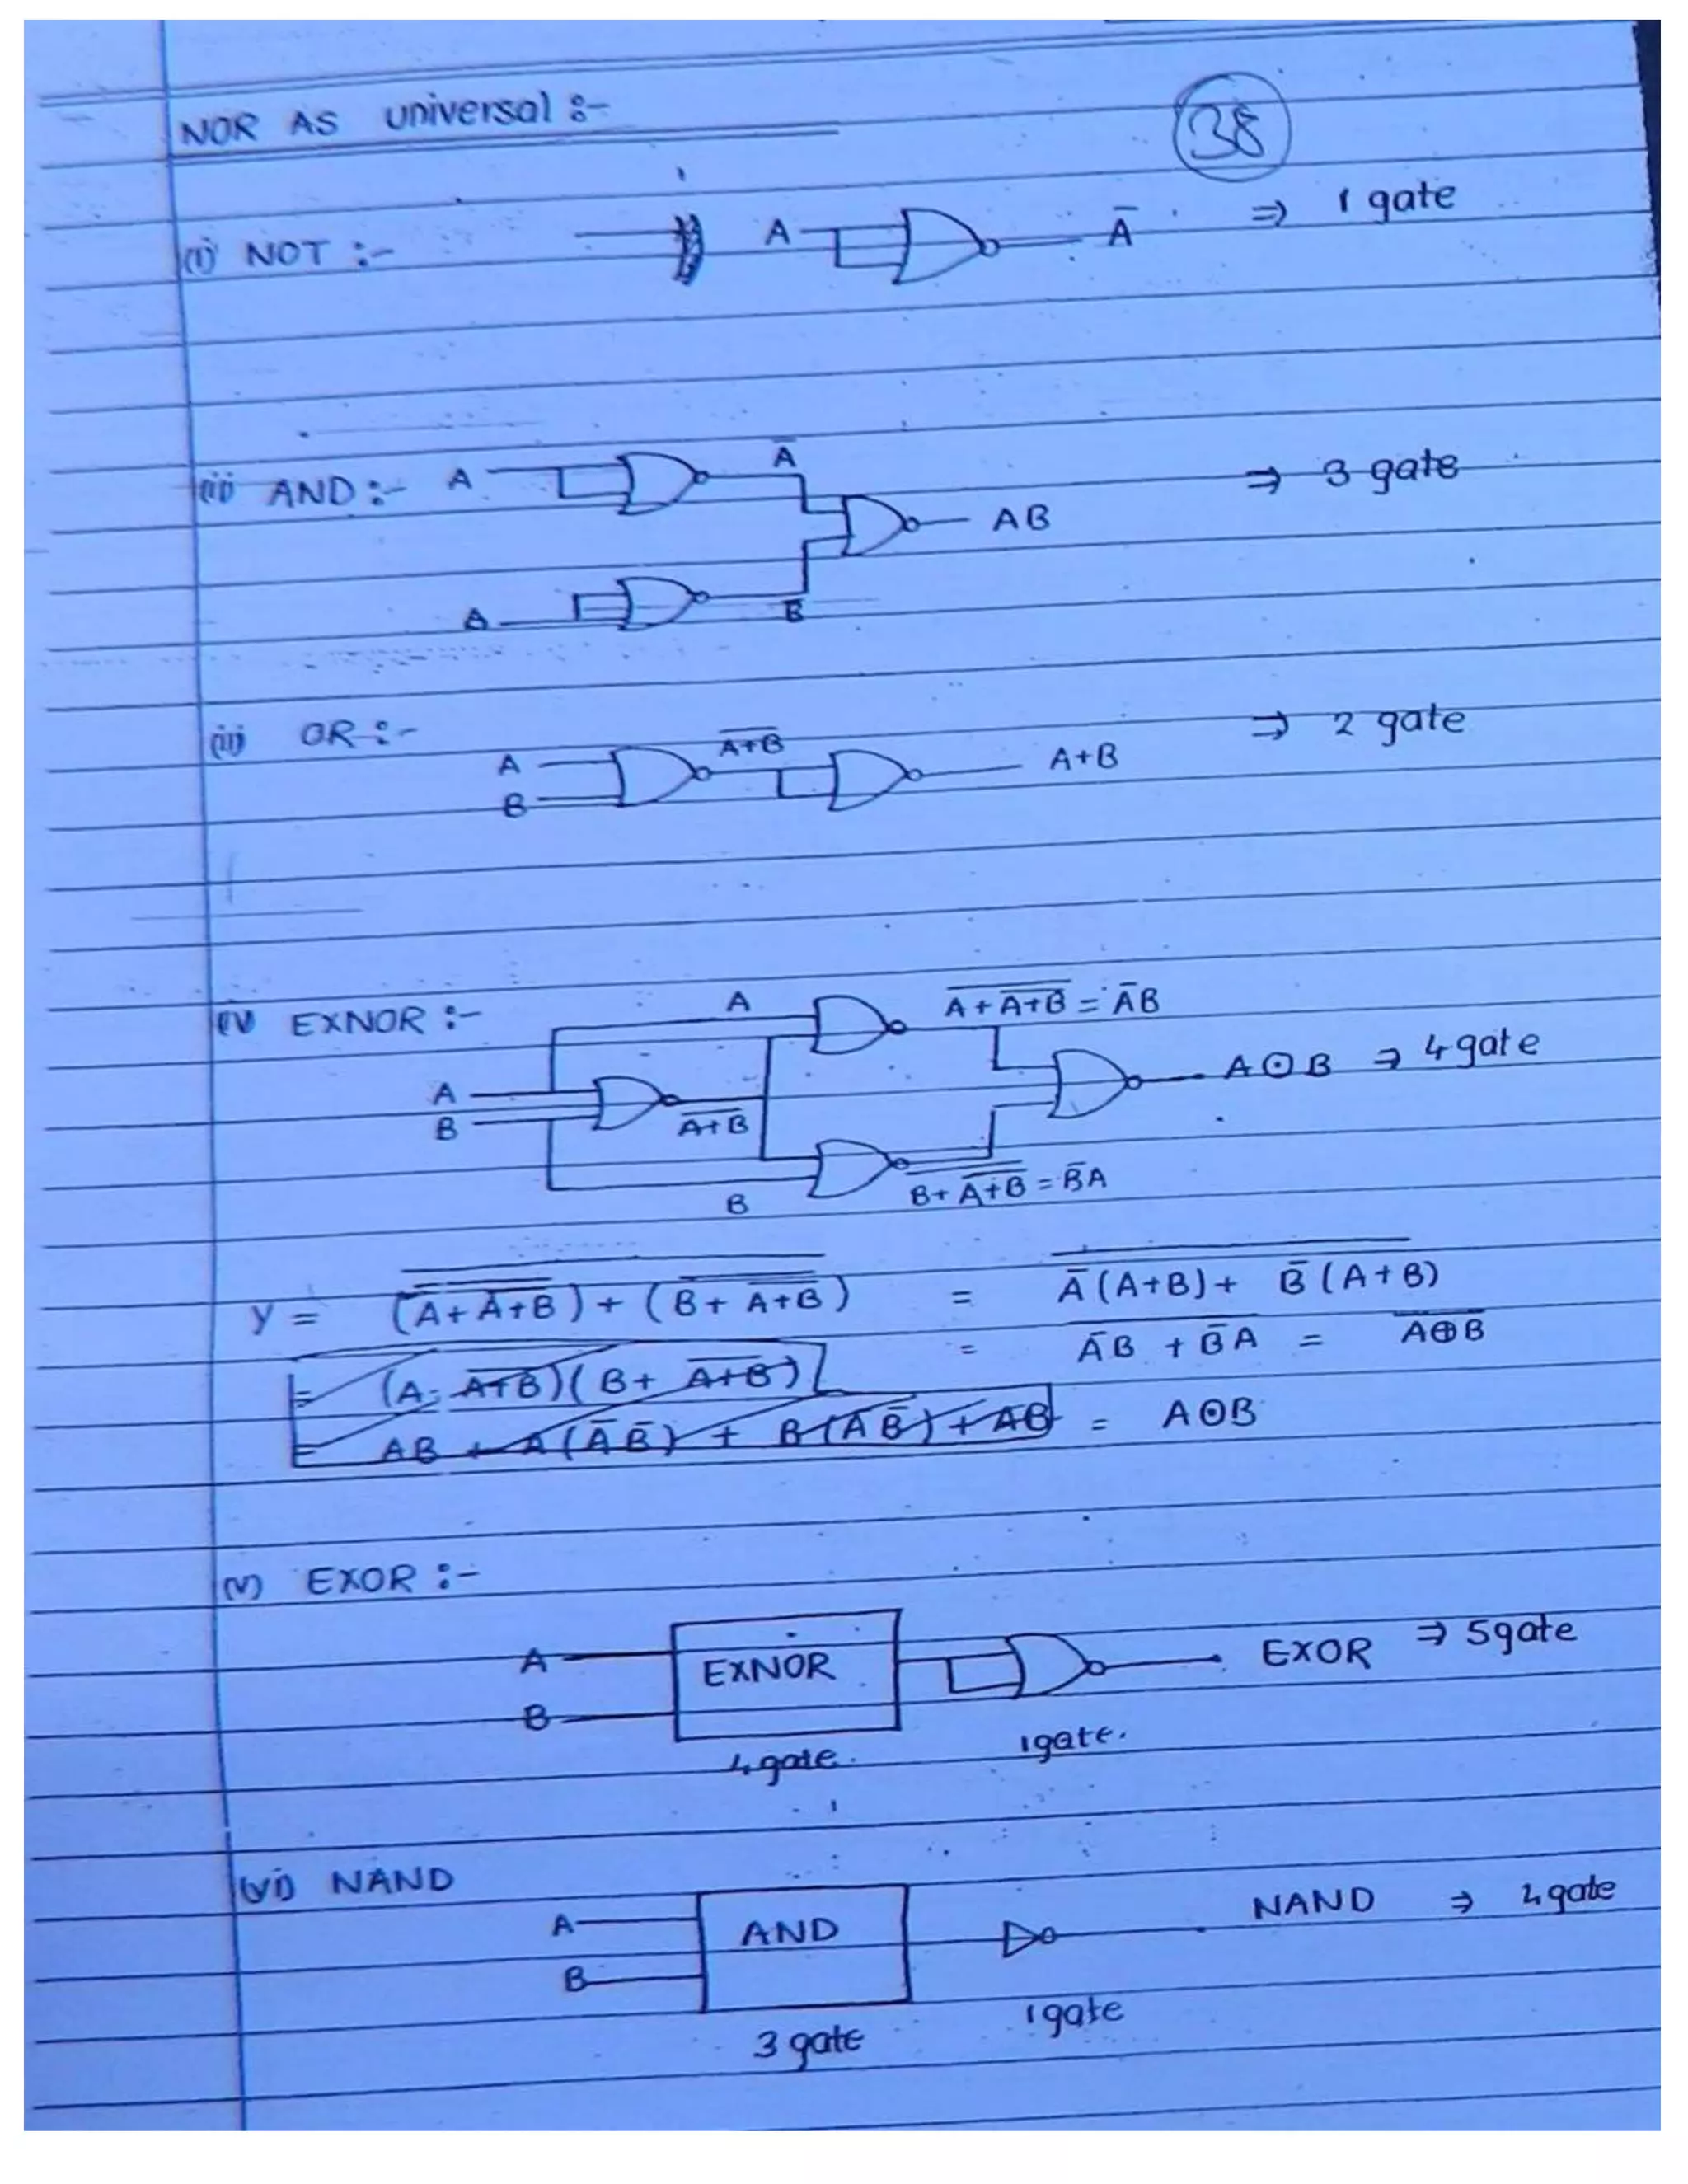 NOR AS universal :-
38
(i) NOT :- A Ā ⇒ 1 gate
(ii) AND :- A Ā AB ⇒ 3 gate
A B̅
(iii) OR :- A B A̅+̅B̅ A+B ⇒ 2 gate
(iv) EXNOR :- A A̅ ̅+̅ ̅A̅+̅B̅ = ĀB
A B A̅+̅B̅ A⊙B ⇒ 4 gate
B B+ A̅+̅B̅ = B̅A
Y = (A+ A̅+̅B̅) + (B+ A̅+̅B̅) = Ā(A+B) + B̅(A+B)
= ĀB + B̅A = A̅⊕̅B̅
= (A. A̅+̅B̅)(B+ A̅+̅B̅)
= AB + A(ĀB̅) + B(ĀB̅) + AB = A⊙B
(v) EXOR :-
A B EXNOR EXOR ⇒ 5 gate
4 gate. 1 gate.
(vi) NAND
A B AND NAND ⇒ 4 gate
3 gate 1 gate